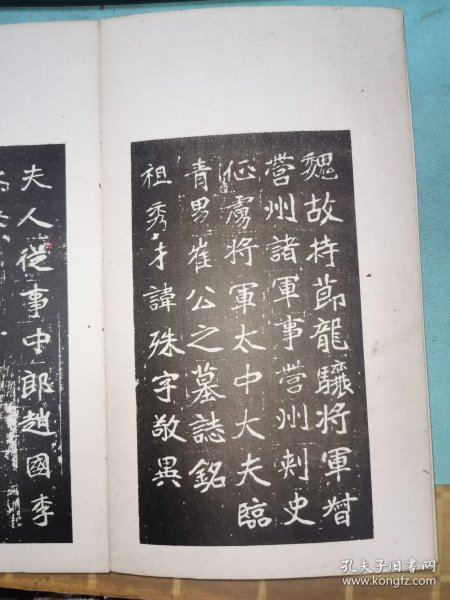 魏故持節龍驤將軍督
營州諸軍事營州刺史
征虜將軍太中大夫臨
青男崔公之墓誌銘
祖秀才諱殊字敬異
夫人從事中郎趙國李
孔夫子旧书网
www.kongfz.com